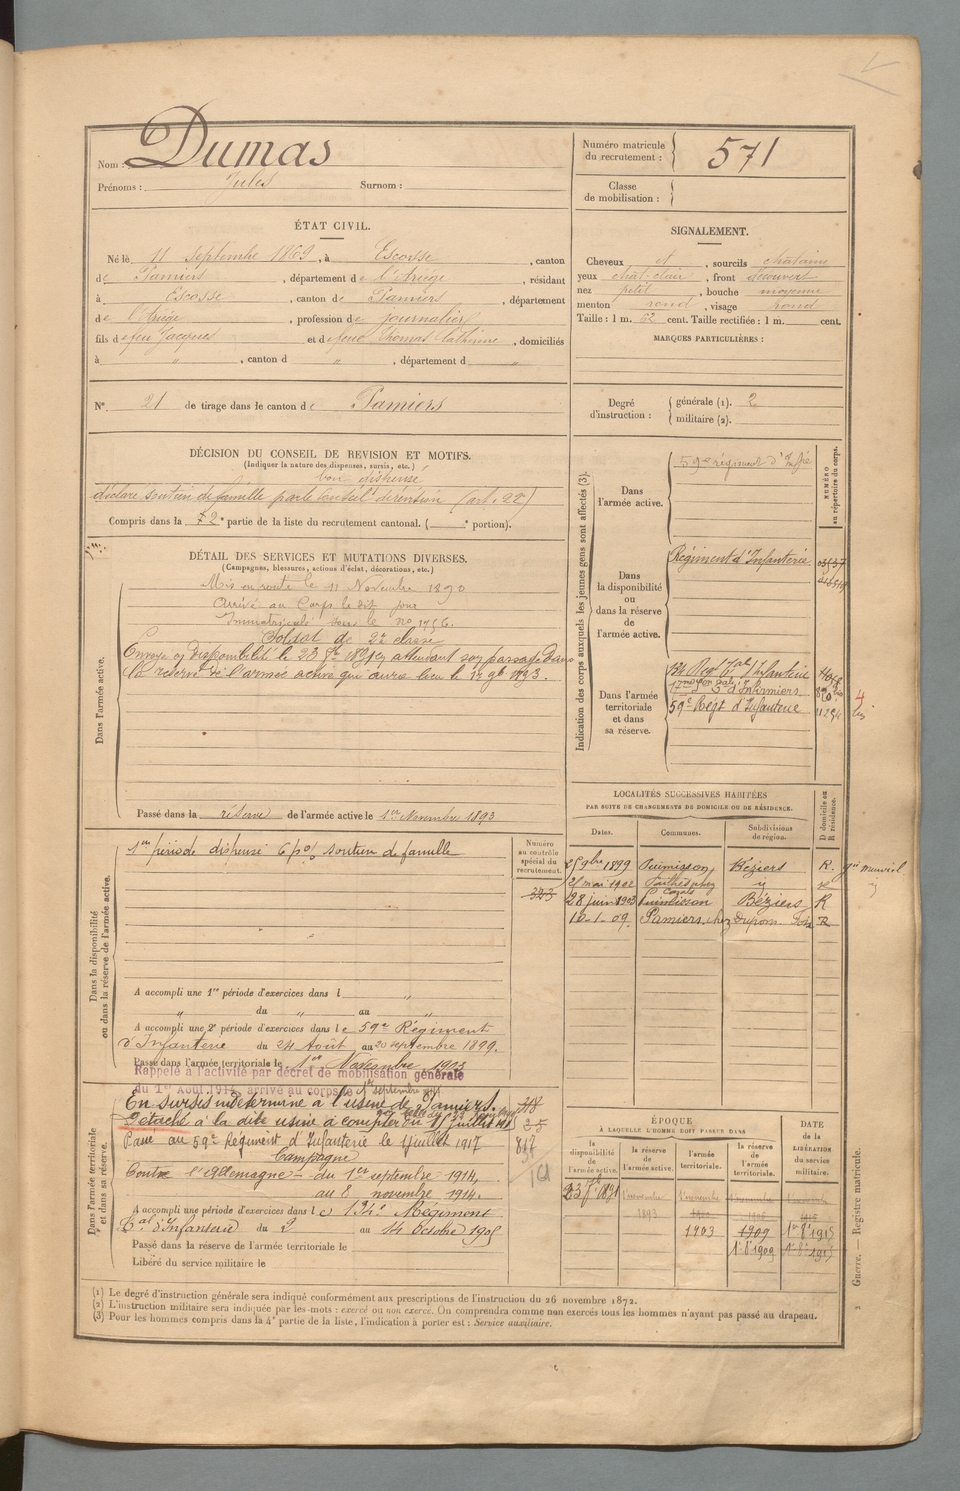 Nom : Dumas
Prénoms : Jules Surnom :
Numéro matricule du recrutement : 571
Classe de mobilisation :
ÉTAT CIVIL.
Né le 11 septembre 1869, à Escosse, canton
de Pamiers, département de l'Ariège, résidant
à Escosse, canton de Pamiers, département
de l'Ariège, profession de Journalier
fils de feu Jacques et de feue Thomas Catherine, domiciliés
à " , canton d " , département d "
SIGNALEMENT.
Cheveux et , sourcils châtains
yeux chat. clair , front découvert
nez petit , bouche moyenne
menton rond , visage rond
Taille : 1 m. 52 cent. Taille rectifiée : 1 m. cent.
MARQUES PARTICULIÈRES :
N° 21 de tirage dans le canton de Pamiers
Degré d'instruction : générale (1). 2
militaire (2).
DÉCISION DU CONSEIL DE REVISION ET MOTIFS.
(Indiquer la nature des dispenses, sursis, etc.)
bon dispensé
déclaré soutien de famille par le Conseil de révision (art. 22)
Compris dans la 2e partie de la liste du recrutement cantonal. ( e portion).
DÉTAIL DES SERVICES ET MUTATIONS DIVERSES.
(Campagnes, blessures, actions d'éclat, décorations, etc.)
Dans l'armée active.
Mis en route le 11 Novembre 1890
Arrivé au Corps le dit jour
Immatriculé sous le no 1756.
Soldat de 2e classe
Envoyé en disponibilité le 23 7bre 1891 en attendant son passage dans
la réserve de l'armée active qui aura lieu le 1er 9bre 1893.
Passé dans la réserve de l'armée active le 1er Novembre 1893
Indication des corps auxquels les jeunes gens sont affectés (3).
NUMÉRO au répertoire du corps.
Dans l'armée active.
59e régiment d'Infie
Dans la disponibilité ou dans la réserve de l'armée active.
Régiment d'Infanterie
Dans l'armée territoriale et dans sa réserve.
134 Régt tal d'Infanterie
17me Son d'Infirmiers
59e Régt d'Infanterie
LOCALITÉS SUCCESSIVES HABITÉES
PAR SUITE DE CHANGEMENTS DE DOMICILE OU DE RÉSIDENCE.
Dates. Communes. Subdivisions de région. D domicile ou R résidence.
25 9bre 1899 Puimisson Béziers R.
21 mai 1902
28 juin 1903 Puimisson Béziers R
10-1-09. Pamiers chez Dupont R
Dans la disponibilité ou dans la réserve de l'armée active.
1ère période dispensé 6 p% soutien de famille
Numéro au contrôle spécial du recrutement.
323
A accompli une 1re période d'exercices dans l "
" du " au "
A accompli une 2e période d'exercices dans le 59e Régiment
d'Infanterie du 24 Août au 20 septembre 1899.
Passé dans l'armée territoriale le 1er Novembre 1903
Rappelé à l'activité par décret de mobilisation générale
du 1er Août 1914, arrivé au corps le 1er septembre 1914
Dans l'armée territoriale et dans sa réserve.
En sursis indéterminé à l'usine de Pamiers.
Détaché à la dite usine à compter du 11 juillet 1917
Passé au 59e Régiment d'Infanterie le 1 juillet 1917
817
Campagne
Contre l'Allemagne - du 1er septembre 1914,
au 8 novembre 1914.
A accompli une période d'exercices dans le 134e Régiment
tal d'Infanterie du 2 au 14 Octobre 1905
Passé dans la réserve de l'armée territoriale le
Libéré du service militaire le
ÉPOQUE
À LAQUELLE L'HOMME DOIT PASSER DANS
la disponibilité de l'armée active. la réserve de l'armée active. l'armée territoriale. la réserve de l'armée territoriale. DATE de la LIBÉRATION du service militaire.
23 7bre 1891 1 novembre 1893 1 novembre 1 novembre 1 novembre
1903 1909 1er 8bre 1915
1er 8bre 1909 1er 8bre 1915
(1) Le degré d'instruction générale sera indiqué conformément aux prescriptions de l'instruction du 26 novembre 1872.
(2) L'instruction militaire sera indiquée par les mots : exercé ou non exercé. On comprendra comme non exercés tous les hommes n'ayant pas passé au drapeau.
(3) Pour les hommes compris dans la 4e partie de la liste, l'indication à porter est : Service auxiliaire.
Guerre. — Registre matricule.
2